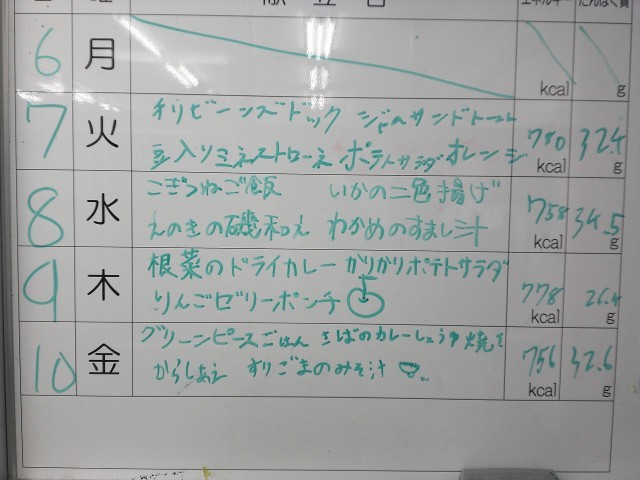 献立名 エネルギー たんぱく質
6 月 kcal g
7 火 チリビーンズドック ジャムサンドトースト
豆入りミネストローネ ポテトサラダ オレンジ 780 kcal 32.4 g
8 水 こぎつねご飯 いかの二色揚げ
えのきの磯和え わかめのすまし汁 758 kcal 34.5 g
9 木 根菜のドライカレー かりかりポテトサラダ
りんごゼリーポンチ 778 kcal 26.4 g
10 金 グリーンピースごはん さばのカレーしょうゆ焼き
からしあえ すりごまのみそ汁 756 kcal 32.6 g